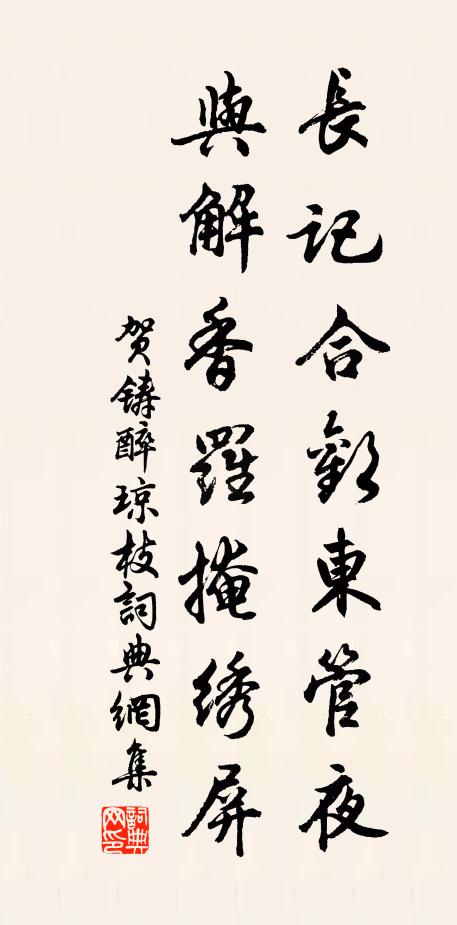 長記合歡東管夜
與解香羅掩绣屏
贺鑄醉琼枝詞典網集
詞典網印